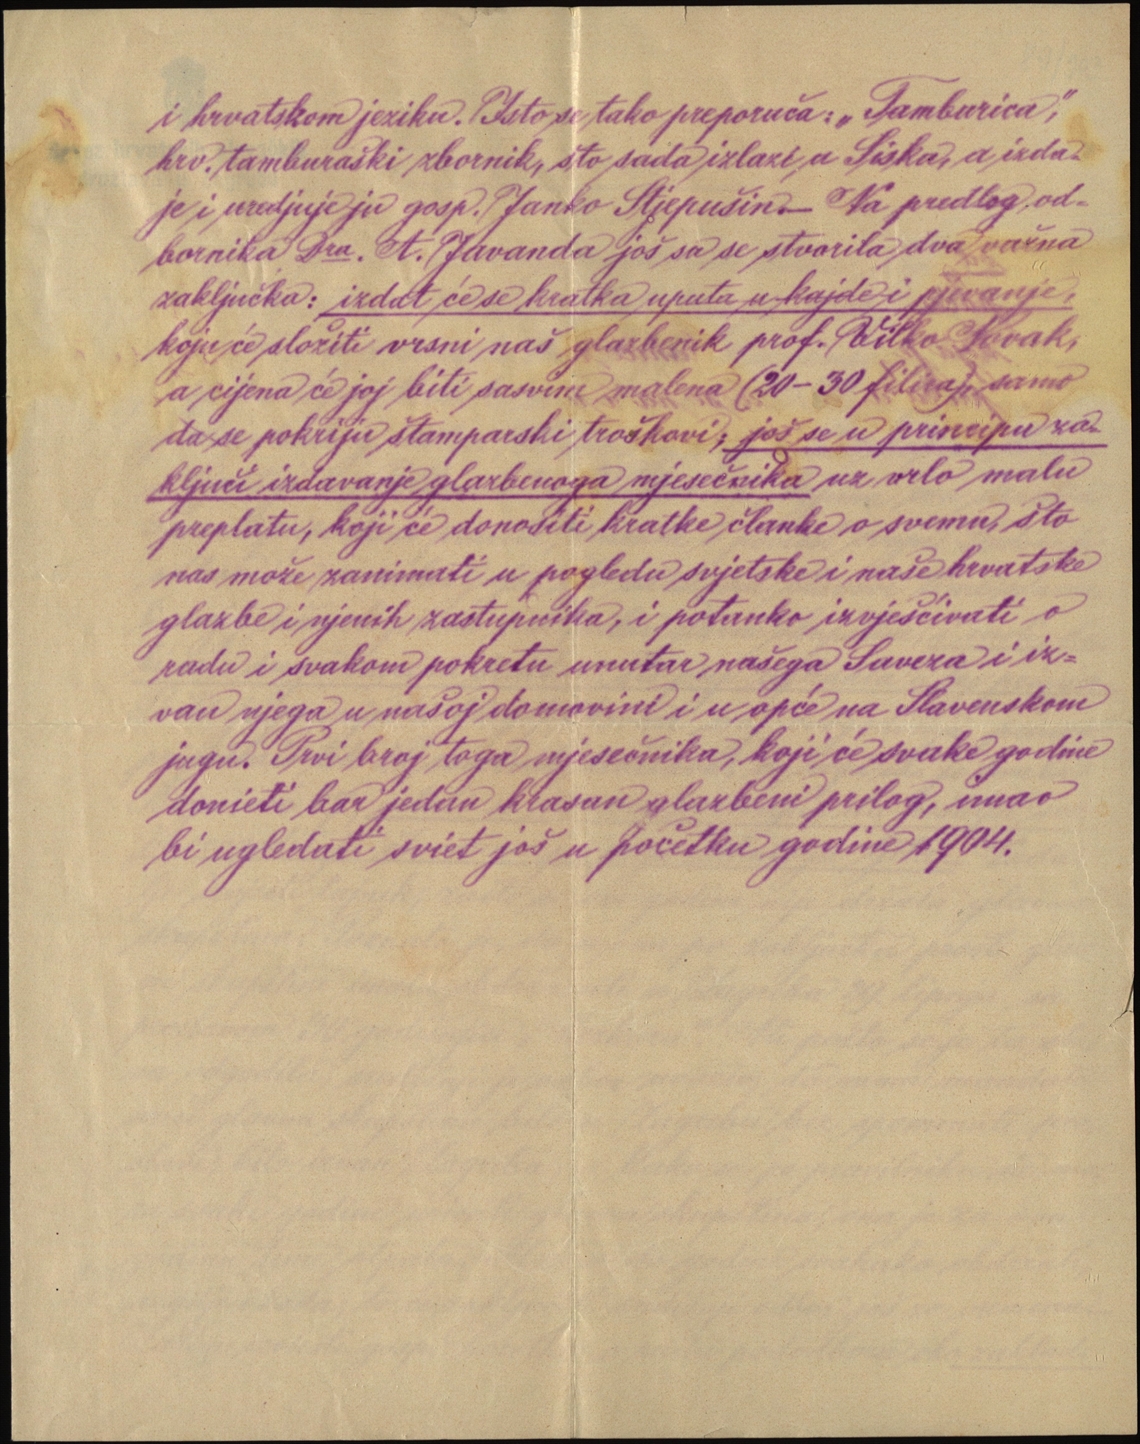 i hrvatskom jeziku. Isto se tako preporuča: „Tamburica,"
hrv. tamburaški zbornik, što sada izlazi u Siska, a izda-
je i uredjuje ju gosp. Janko Stjepušin. — Na predlog od-
bornika Dra. A. Javanda još sa se stvorila dva važna
zaključka: izdat će se kratka uputa u kajde i pjevanje,
koju će složiti vrsni naš glazbenik prof. Vilko Novak,
a cijena će joj biti sasvim malena (20-30 filira), samo
da se pokriju štamparski troškovi; još se u principu za-
ključi izdavanje glazbenoga mjesečnika uz vrlo malu
preplatu, koji će donositi kratke članke o svemu, što
nas može zanimati u pogledu svjetske i naše hrvatske
glazbe i njenih zastupnika, i potanko izvješćivati o
radu i svakom pokretu unutar našega Saveza i iz=
van njega u našoj domovini i u opće na Slavenskom
jugu. Prvi broj toga mjesečnika, koji će svake godine
donieti bar jedan krasan glazbeni prilog, imao
bi ugledati sviet još u početku godine 1904.